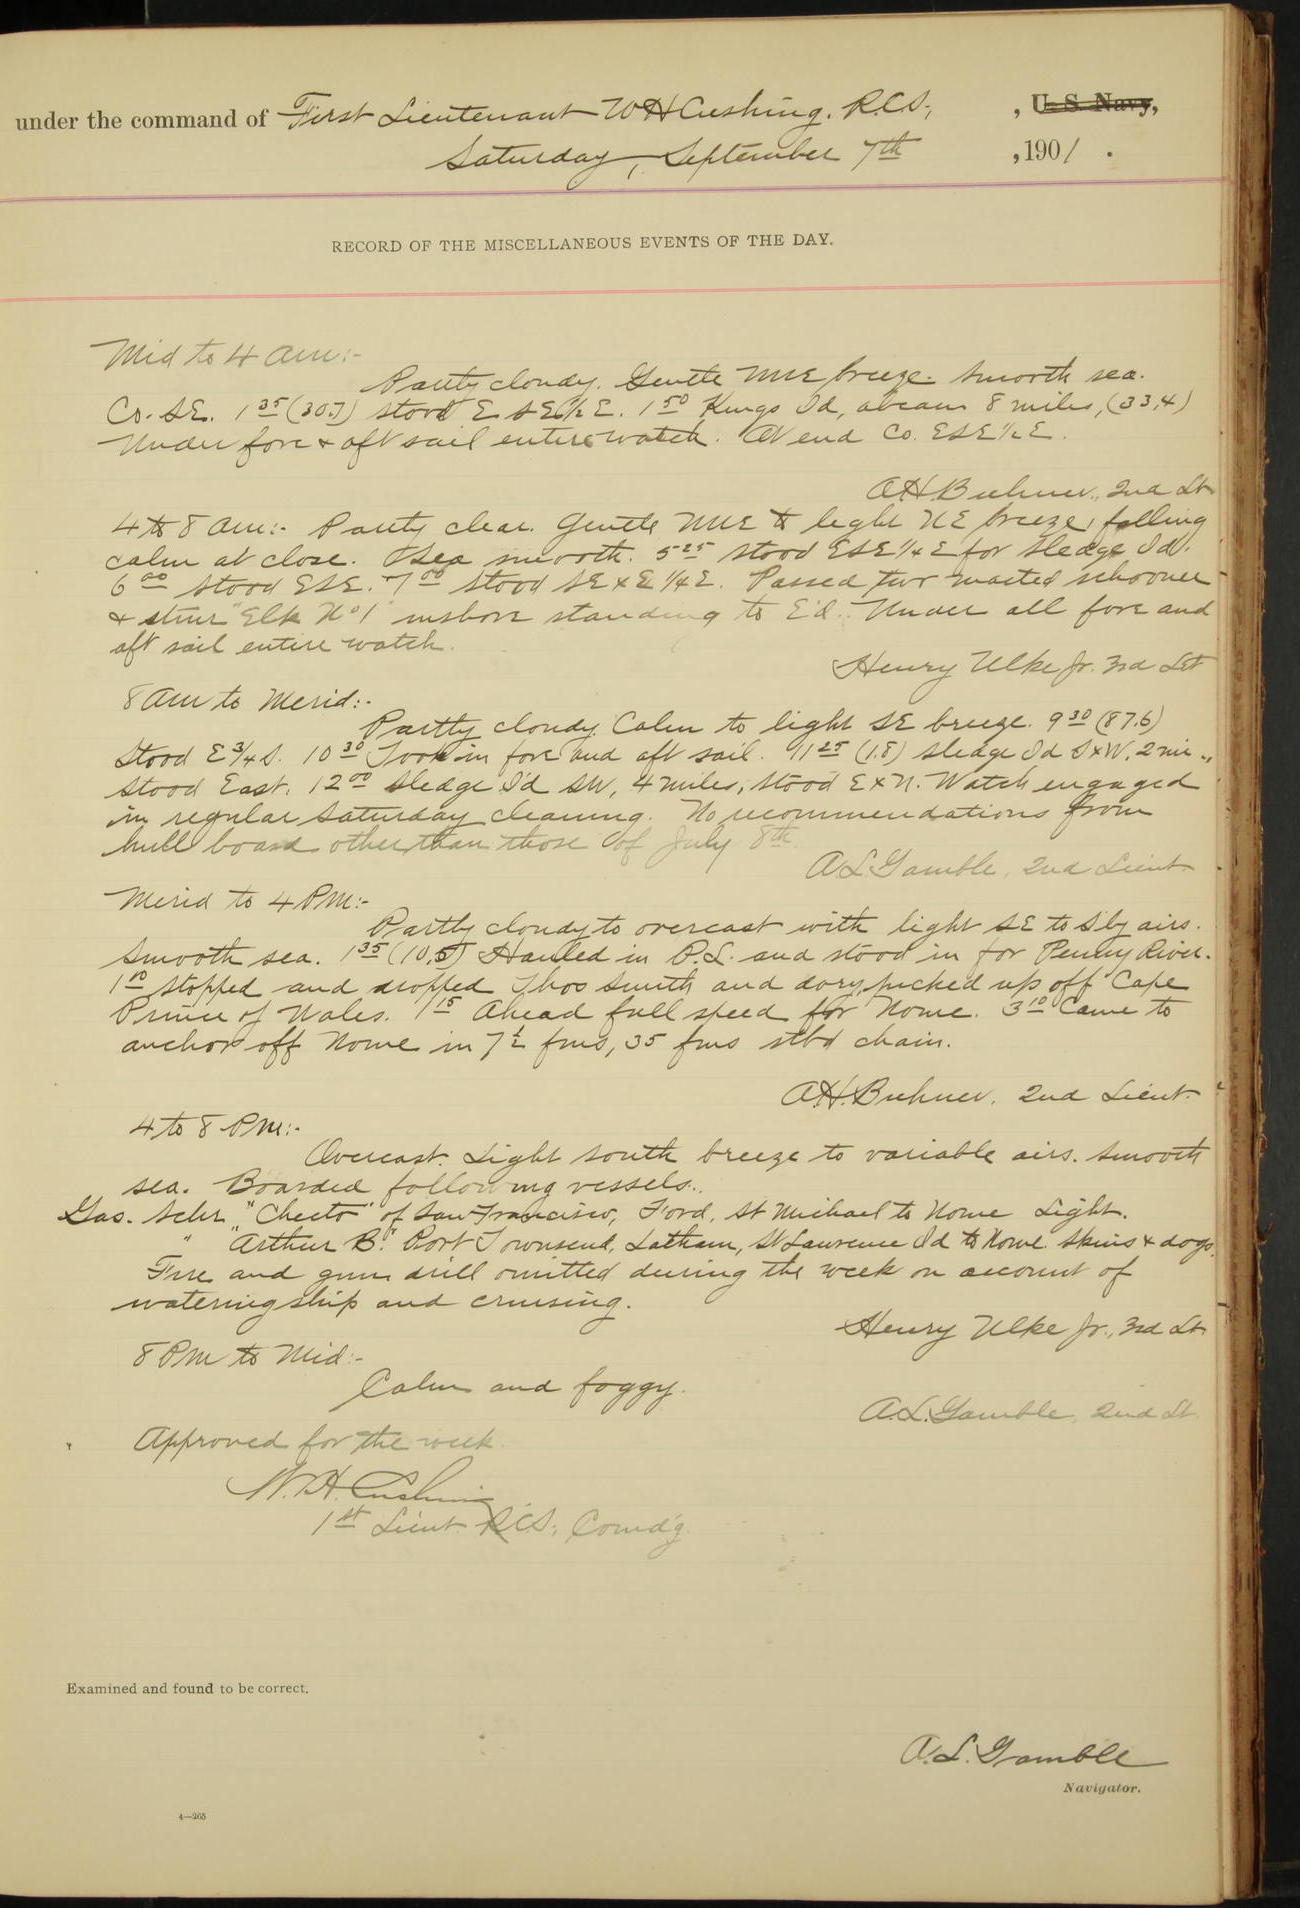 under the command of First Lieutenant W H Cushing. R.C.S., , U. S. Navy,
Saturday, September 7th , 1901 .
RECORD OF THE MISCELLANEOUS EVENTS OF THE DAY.
Mid to 4 am:-
Partly cloudy. Gentle NNE breeze. Smooth sea.
Co. SE. 1 35 (30.7) stood E SE½E. 1 50 Kings Id, abeam 8 miles, (33.4)
Under fore & aft sail entire watch. At end Co. ESE½E.
A H Buhner, 2nd Lt
4 to 8 am:- Partly clear. Gentle NNE to light NE breeze, falling
calm at close. Sea smooth. 5 25 stood ESE¼E for Sledge Id.
6 00 stood ESE. 7 00 stood SE x E¼E. Passed two masted schooner
& stmr "Elk No 1" inshore standing to E'd. Under all fore and
aft sail entire watch.
Henry Ulke Jr. 3rd Lt
8 Am to Merid:-
Partly cloudy Calm to light SE breeze. 9 30 (87.6)
Stood E¾S. 10 30 Took in fore and aft sail. 11 25 (1.8) Sledge Id SxW. 2 mi.,
stood East. 12 00 Sledge I'd SW, 4 miles, stood E x N. Watch engaged
in regular Saturday cleaning. No recommendations from
hull board other than those of July 8th.
A L Gamble, 2nd Lieut.
Merid to 4 PM:-
Partly cloudy to overcast with light SE to S'ly airs.
Smooth sea. 1 35 (10.5) Hauled in P.L. and stood in for Penny River.
1 10 stopped and dropped Thos Smith and dory, picked up off Cape
Prince of Wales. 1 15 Ahead full speed for Nome. 3 10 Came to
anchor off Nome in 7½ fms, 35 fms stbd chain.
A.H. Buhner. 2nd Lieut.
4 to 8 PM:-
Overcast. Light south breeze to variable airs. Smooth
sea. Boarded following vessels.
Gas. Schr. "Checto" of San Francisco, Ford, St Michael to Nome Light.
" "Arthur B." Port Townsend, Latham, St Lawrence Id to Nome. Skins & dogs.
Fire and gun drill omitted during the week on account of
watering ship and cruising.
Henry Ulke Jr., 3rd Lt
8 PM to Mid:-
Calm and foggy.
A.L. Gamble, 2nd Lt
Approved for the week.
W. H. Cushing
1st Lieut. RCS, Comd'g.
Examined and found to be correct.
A. L. Gamble
Navigator.
4—265